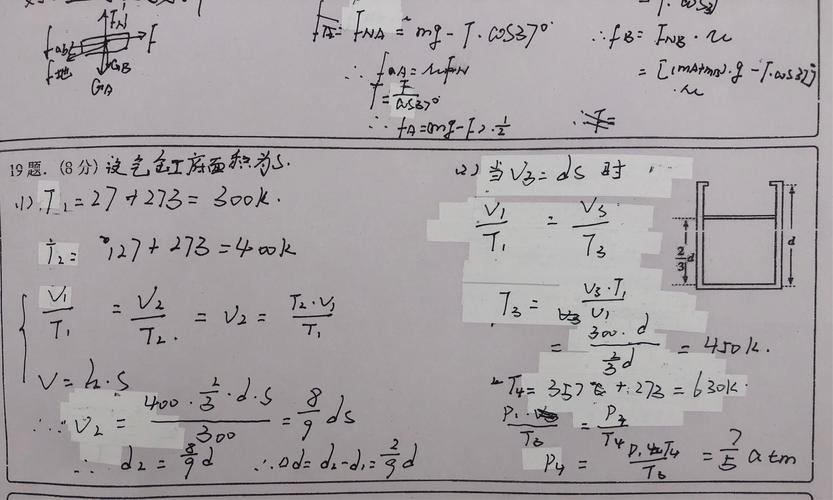 F_N
F
f地
G_B
G_A
f_A = F_NA = mg - T·cos37°
T = F/cos37°
∴ f_B = F_NB · u
= [(mA+mB)·g - T·cos37°]
·u
19题. (8分) 设气缸底面积为S.
(1). T₁ = 27 + 273 = 300k.
T₂ = 127 + 273 = 400k
V₁/T₁ = V₂/T₂. = V₂ = T₂·V₁/T₁
V = h·S
∴ V₂ = 400·2/3·d·S/300 = 8/9 dS
∴ d₂ = 8/9 d ∴ Δd = d₂ - d₁ = 2/9 d
(2) 当 V₃ = dS 时
V₁/T₁ = V₃/T₃
T₃ = V₃·T₁/V₁
= 300·d/(2/3 d) = 450k.
T₄ = 357℃ + 273 = 630k.
P₄ = = 7/5 atm
2/3 d
d